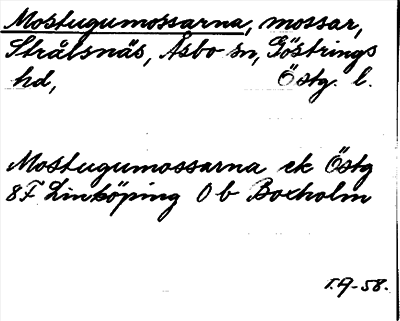 Mostugumossarna, mossar,
Strålsnäs, Åsbo sn, Göstrings
hd, Östg. l.
Mostugumossarna ek Östg
8F Linköping 0 b Boxholm
I.A-58.